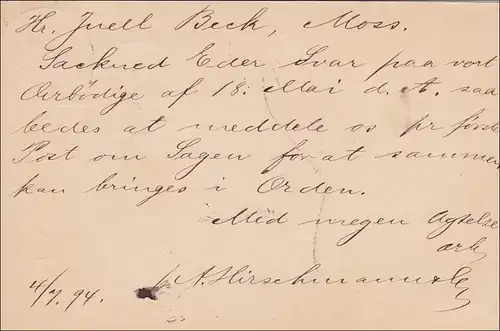 Hr. Juell Beck, Moss.
Sackned Eder Svar paa vort
Ærbödige af 18. Mai d. A. saa
bedes at meddele os pr förste
Post om Sagen for at samme
kan bringes i Orden.
Med megen Agtelse
ærb
4/7. 94. pr A. Hirschmann & Co